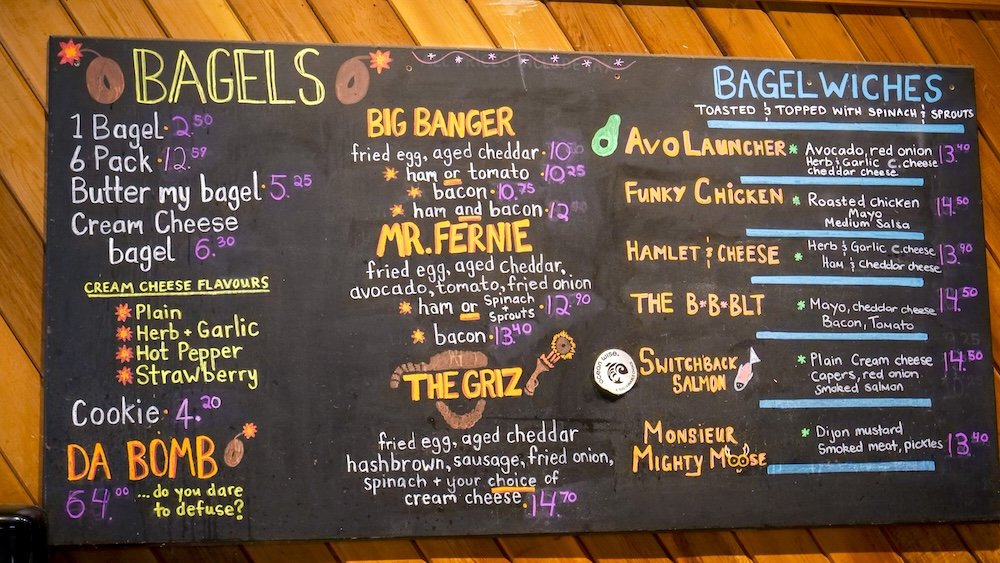 BAGELS
1 Bagel · 2.50
6 Pack · 12.59
Butter my bagel · 5.25
Cream Cheese
bagel 6.30
CREAM CHEESE FLAVOURS
Plain
Herb + Garlic
Hot Pepper
Strawberry
Cookie · 4.20
DA BOMB
64.00 ...do you dare
to defuse?
BIG BANGER
fried egg, aged cheddar · 10
ham or tomato · 10.25
bacon · 10.75
ham and bacon · 12
MR. FERNIE
fried egg, aged cheddar,
avocado, tomato, fried onion
ham or Spinach + Sprouts · 12.90
bacon · 13.40
THE GRIZ
fried egg, aged cheddar
hashbrown, sausage, fried onion,
spinach + your choice of
cream cheese · 14.70
BAGEL·WICHES
TOASTED & TOPPED WITH SPINACH & SPROUTS
AVO LAUNCHER * Avocado, red onion 13.40
Herb & Garlic C. cheese
cheddar cheese
FUNKY CHICKEN * Roasted chicken 14.50
Mayo
Medium Salsa
HAMLET & CHEESE * Herb & Garlic C. cheese 13.90
Ham & Cheddar cheese
THE B*B*BLT * Mayo, cheddar cheese 14.50
Bacon, Tomato
ocean wise.
SWITCHBACK * Plain Cream cheese 14.50
SALMON Capers, red onion
Smoked salmon
MONSIEUR * Dijon mustard
MIGHTY MOOSE Smoked meat, pickles 13.40